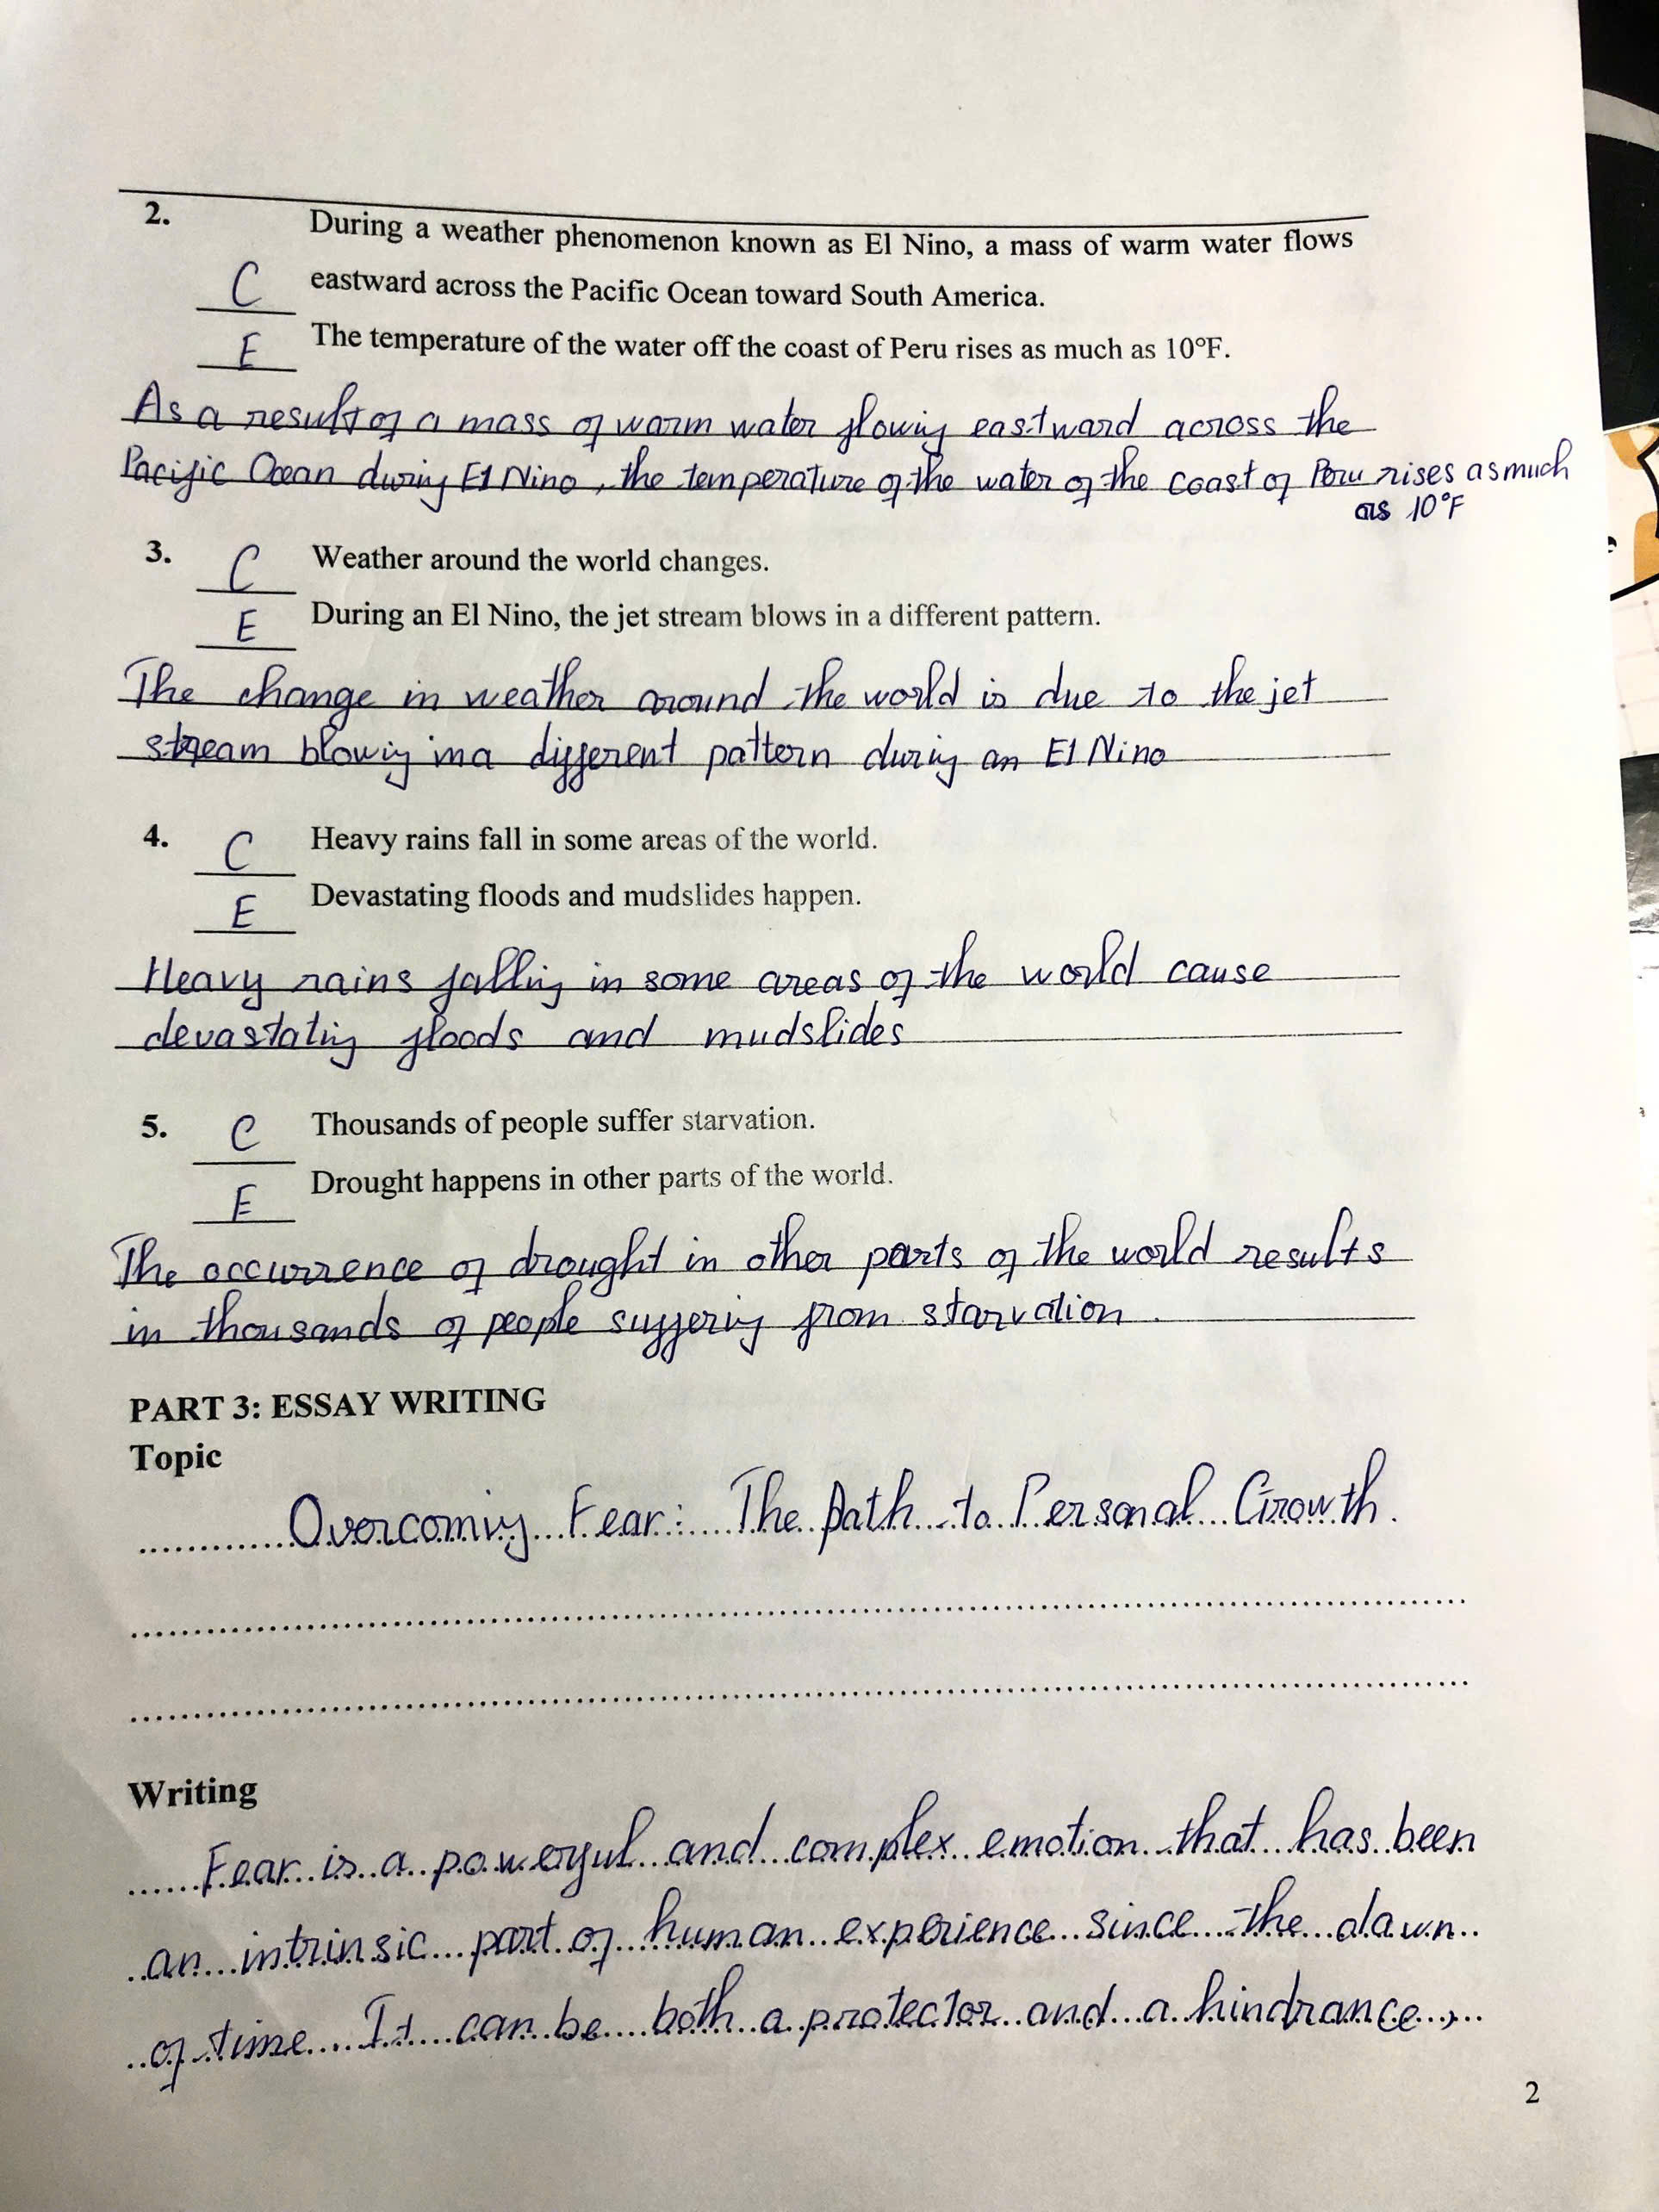 2. During a weather phenomenon known as El Nino, a mass of warm water flows
C eastward across the Pacific Ocean toward South America.
E The temperature of the water off the coast of Peru rises as much as 10°F.
As a result of a mass of warm water flowing eastward across the
Pacific Ocean during El Nino, the temperature of the water of the coast of Peru rises as much
as 10°F
3. C Weather around the world changes.
E During an El Nino, the jet stream blows in a different pattern.
The change in weather around the world is due to the jet
stream blowing in a different pattern during an El Nino
4. C Heavy rains fall in some areas of the world.
E Devastating floods and mudslides happen.
Heavy rains falling in some areas of the world cause
devastating floods and mudslides
5. C Thousands of people suffer starvation.
E Drought happens in other parts of the world.
The occurrence of drought in other parts of the world results
in thousands of people suffering from starvation.
PART 3: ESSAY WRITING
Topic
Overcoming Fear: The Path to Personal Growth.
Writing
Fear is a powerful and complex emotion that has been
an intrinsic part of human experience since the dawn
of time. It can be both a protector and a hindrance,
2